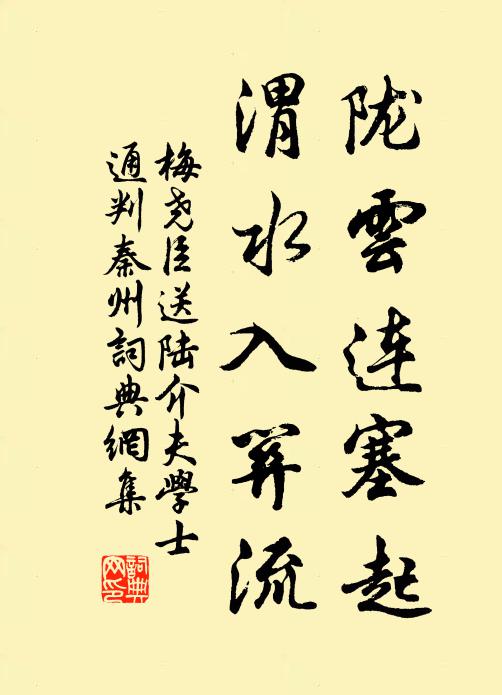 陇雲連塞起
渭水入關流
梅尧臣送陆介夫學士
通判秦州詞典網集
詞典网印